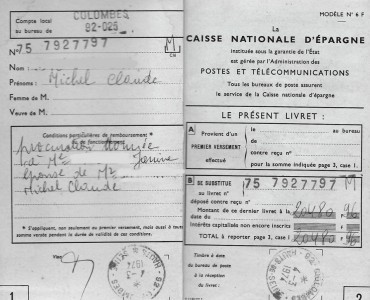 Compte local
au bureau de
COLOMBES
92-025
N° 75 7927797 M
Nom :
Prénoms : Michel Claude
Femme de M.
Veuve de M.
Conditions particulières de remboursement
et de fonctionnement*
procuration donnée
à Me Janine
épouse de Mr
Michel Claude
* S'appliquent, non seulement au premier versement, mais aussi à toute
somme versée pendant la durée de validité de ces conditions.
Visa :
1
MODÈLE N° 6 F
La
CAISSE NATIONALE D'ÉPARGNE
instituée sous la garantie de l'État
est gérée par l'Administration des
POSTES ET TÉLÉCOMMUNICATIONS
Tous les bureaux de poste assurent
le service de la Caisse nationale d'épargne
LE PRÉSENT LIVRET :
A Provient d'un
PREMIER VERSEMENT
effectué
le au bureau
de
contre reçu n°
pour la somme indiquée page 3, case 1.
B SE SUBSTITUE 75 7927797 M
au livret n°
déposé contre reçu n°
Montant de ce dernier livret à la
date du 20480 96
Intérêts capitalisés encore non inscrits
TOTAL à reporter page 3, case 1 20480 96
Timbre à date
du bureau de poste
à la réception
du livret :
2